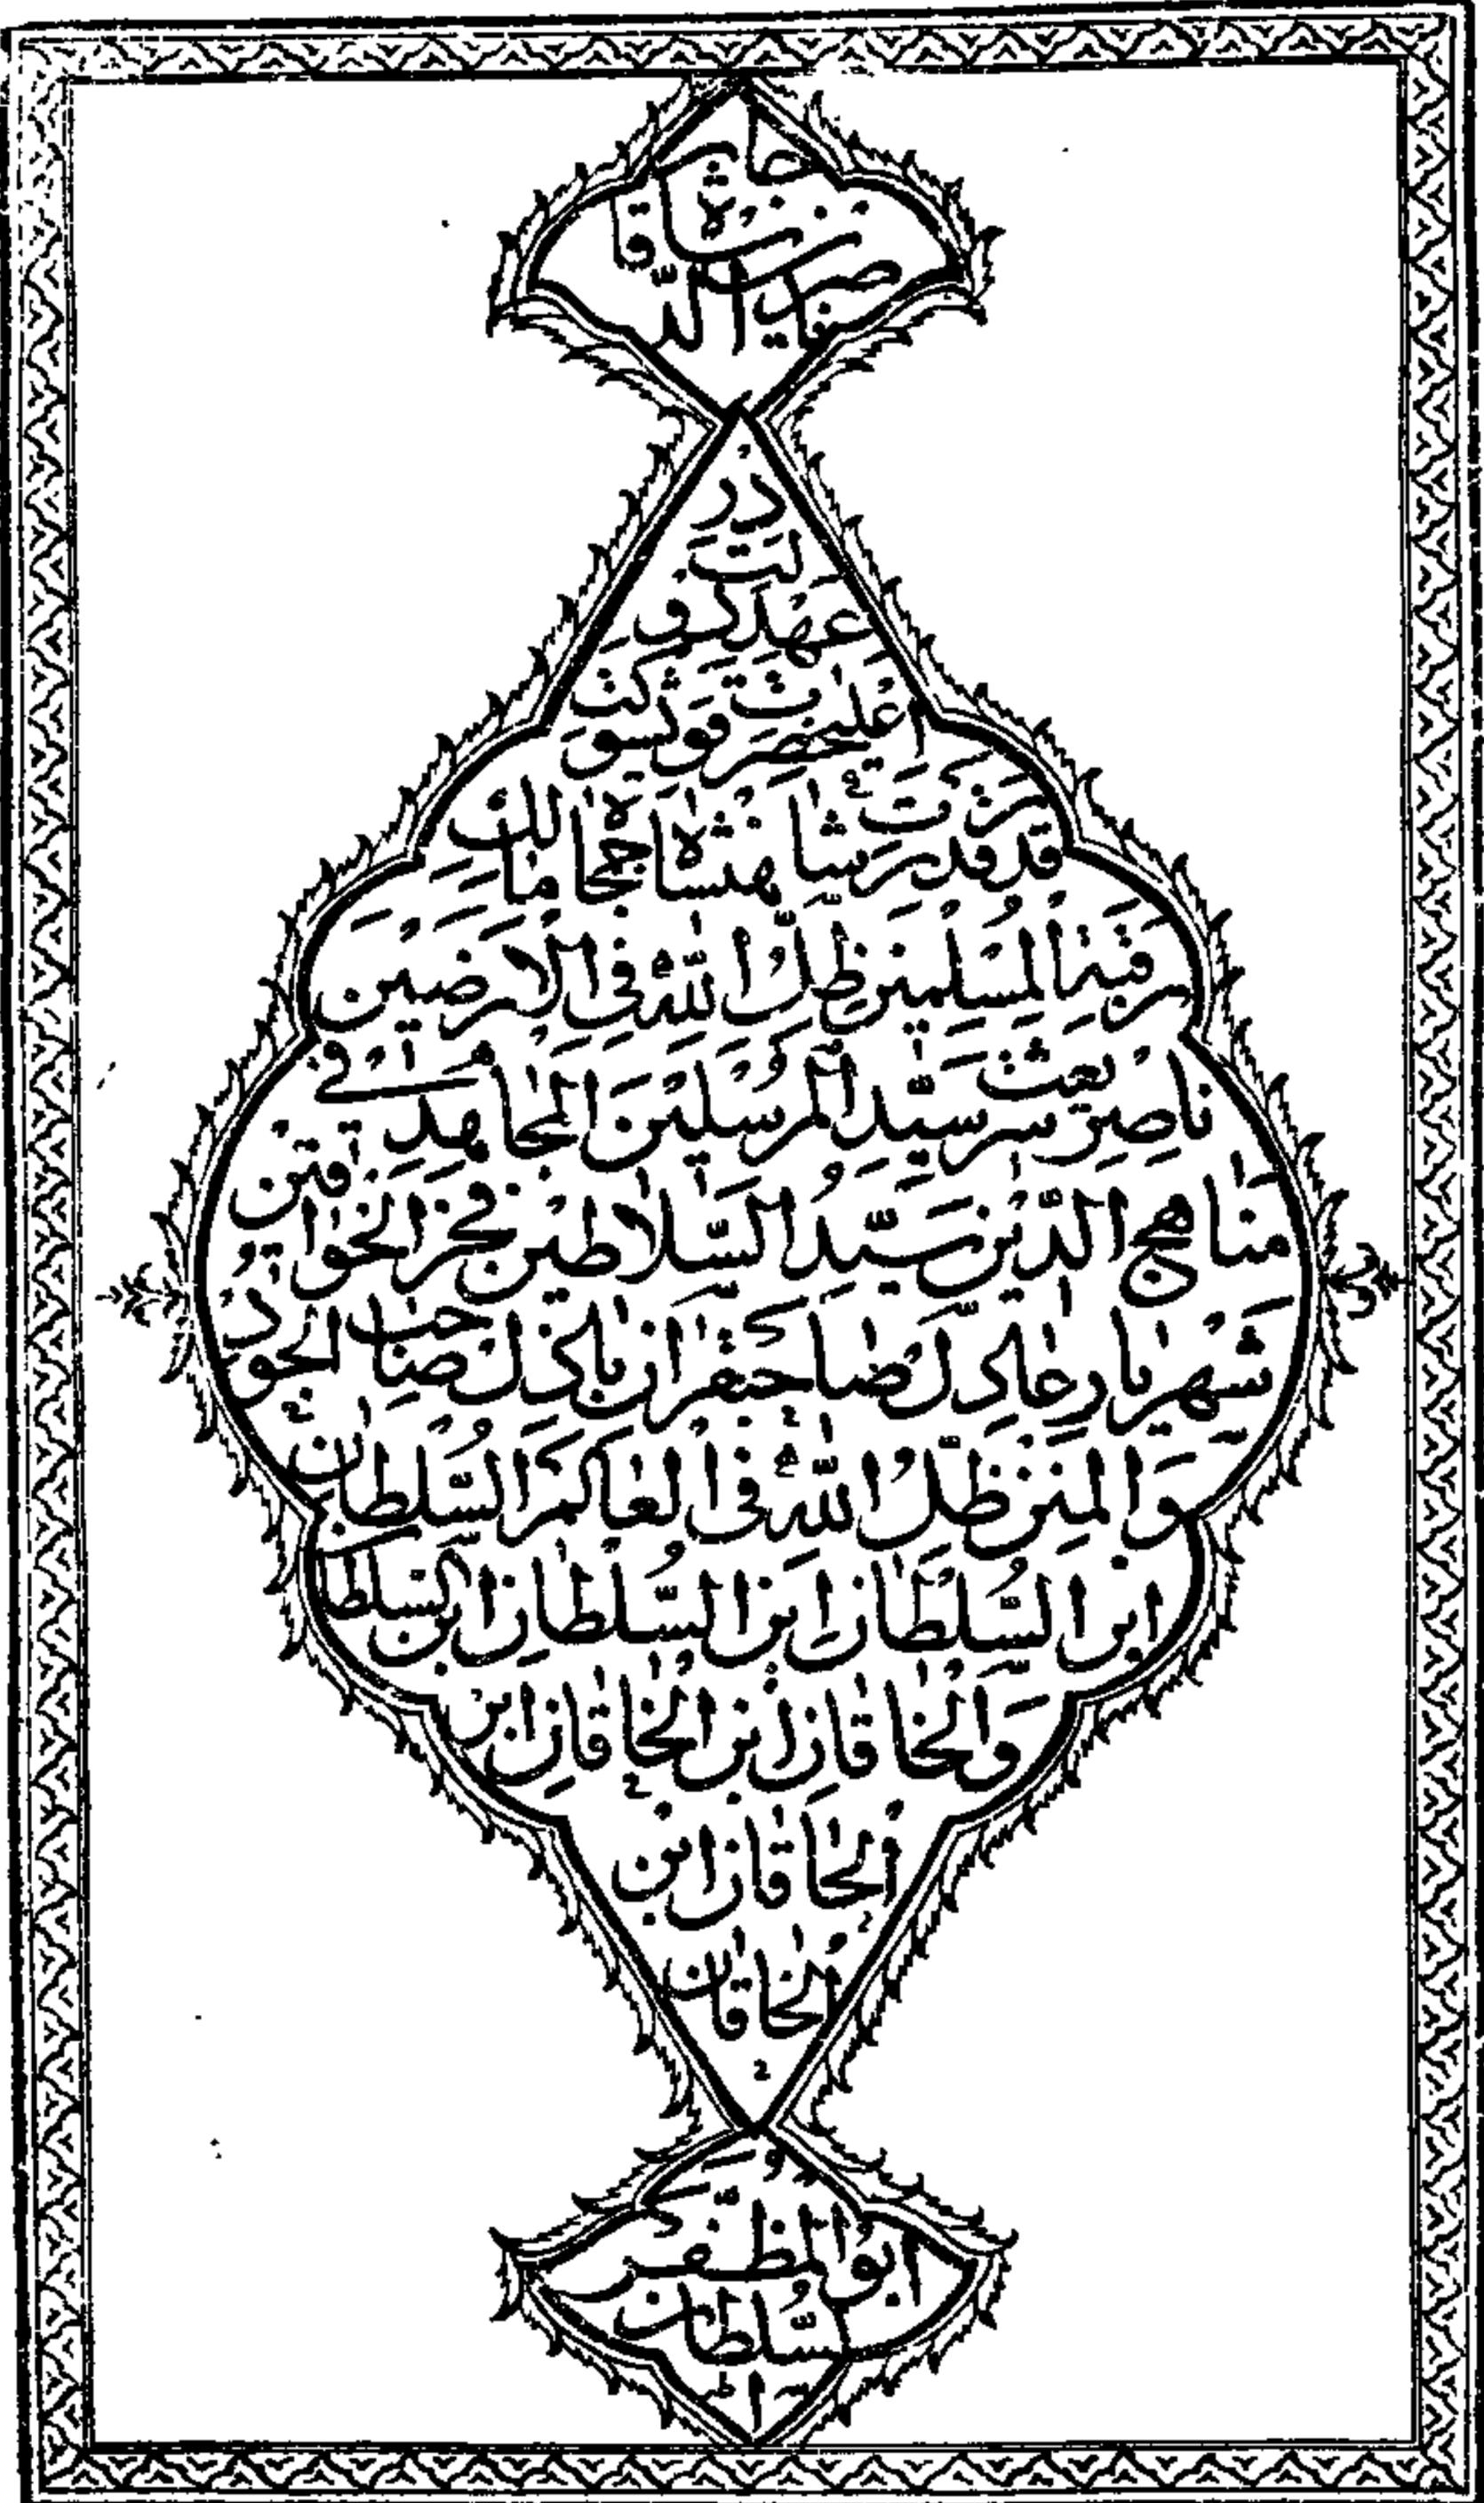 ناصرالدین شاه قا
در
عهد دولت
اعلیحضرت قوی شوکت
قدر قدرت شاهنشاه جمجاه مالک
رقبة المسلمین ظل الله فی الارضین
ناصر بعثت سید المرسلین المجاهد فی
مناهج الدین سید السلاطین فخر الخواقین
شهریار عادل صاحبقران باذل صاحب الجود
والمن ظل الله فی العالم السلطان
ابن السلطان ابن السلطان ابن السلطان
والخاقان ابن الخاقان ابن
الخاقان ابن
الخاقان
ابو المظفر
السلطان